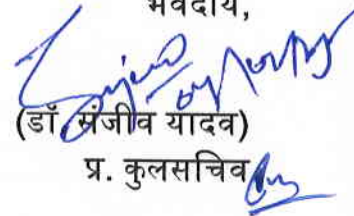 भवदीय,
(डॉ. संजीव यादव)
प्र. कुलसचिव